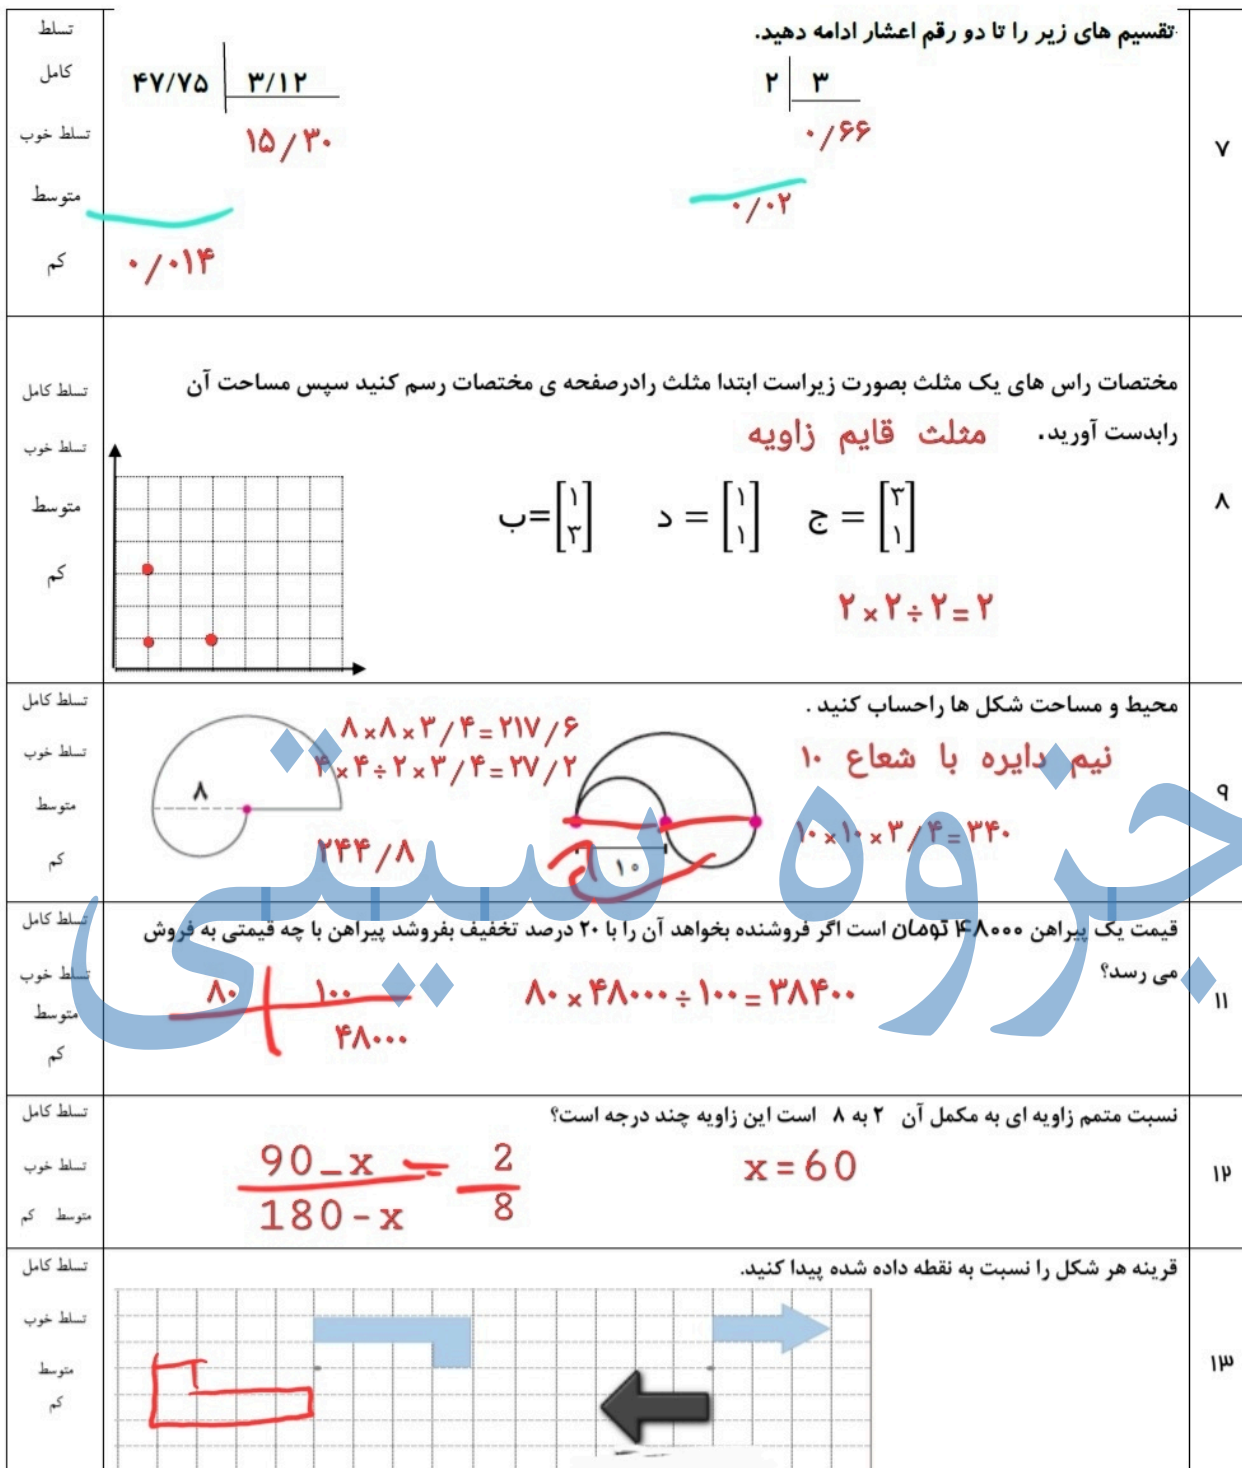 ۷
تقسیم های زیر را تا دو رقم اعشار ادامه دهید.
۲ ۳
۰/۶۶
۰/۰۲
۴۷/۷۵ ۳/۱۲
۱۵/۳۰
۰/۰۱۴
تسلط
کامل
تسلط خوب
متوسط
کم
۸
مختصات راس های یک مثلث بصورت زیراست ابتدا مثلث رادرصفحه ی مختصات رسم کنید سپس مساحت آن
رابدست آورید. مثلث قایم زاویه
ج = [۳ ۱] د = [۱ ۱] ب= [۱ ۳]
۲×۲÷۲=۲
تسلط کامل
تسلط خوب
متوسط
کم
۹
محیط و مساحت شکل ها راحساب کنید .
نیم دایره با شعاع ۱۰
۱۰×۱۰×۳/۴=۳۴۰
۱۰
۸×۸×۳/۴=۲۱۷/۶
۴×۴÷۲×۳/۴=۲۷/۲
۸
۲۴۴/۸
تسلط کامل
تسلط خوب
متوسط
کم
جزوه سیتی
۱۱
قیمت یک پیراهن ۴۸۰۰۰ تومان است اگر فروشنده بخواهد آن را با ۲۰ درصد تخفیف بفروشد پیراهن با چه قیمتی به فروش
می رسد؟
۸۰×۴۸۰۰۰÷۱۰۰=۳۸۴۰۰
۸۰ ۱۰۰
۴۸۰۰۰
تسلط کامل
تسلط خوب
متوسط
کم
۱۲
نسبت متمم زاویه ای به مکمل آن ۲ به ۸ است این زاویه چند درجه است؟
90-x = 2
180-x 8
x=60
تسلط کامل
تسلط خوب
متوسط کم
۱۳
قرینه هر شکل را نسبت به نقطه داده شده پیدا کنید.
تسلط کامل
تسلط خوب
متوسط
کم